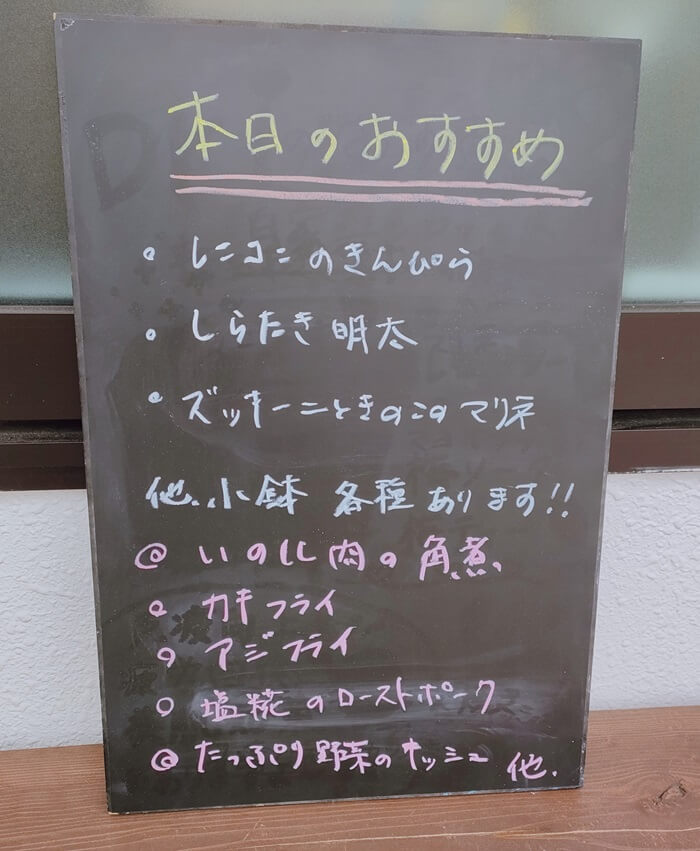 本日のおすすめ
• レンコンのきんぴら
• しらたき明太
• ズッキーニときのこのマリネ
他、小鉢 各種あります!!
◎ いのしし肉の角煮
○ カキフライ
○ アジフライ
○ 塩糀のローストポーク
◎ たっぷり野菜のキッシュ 他、